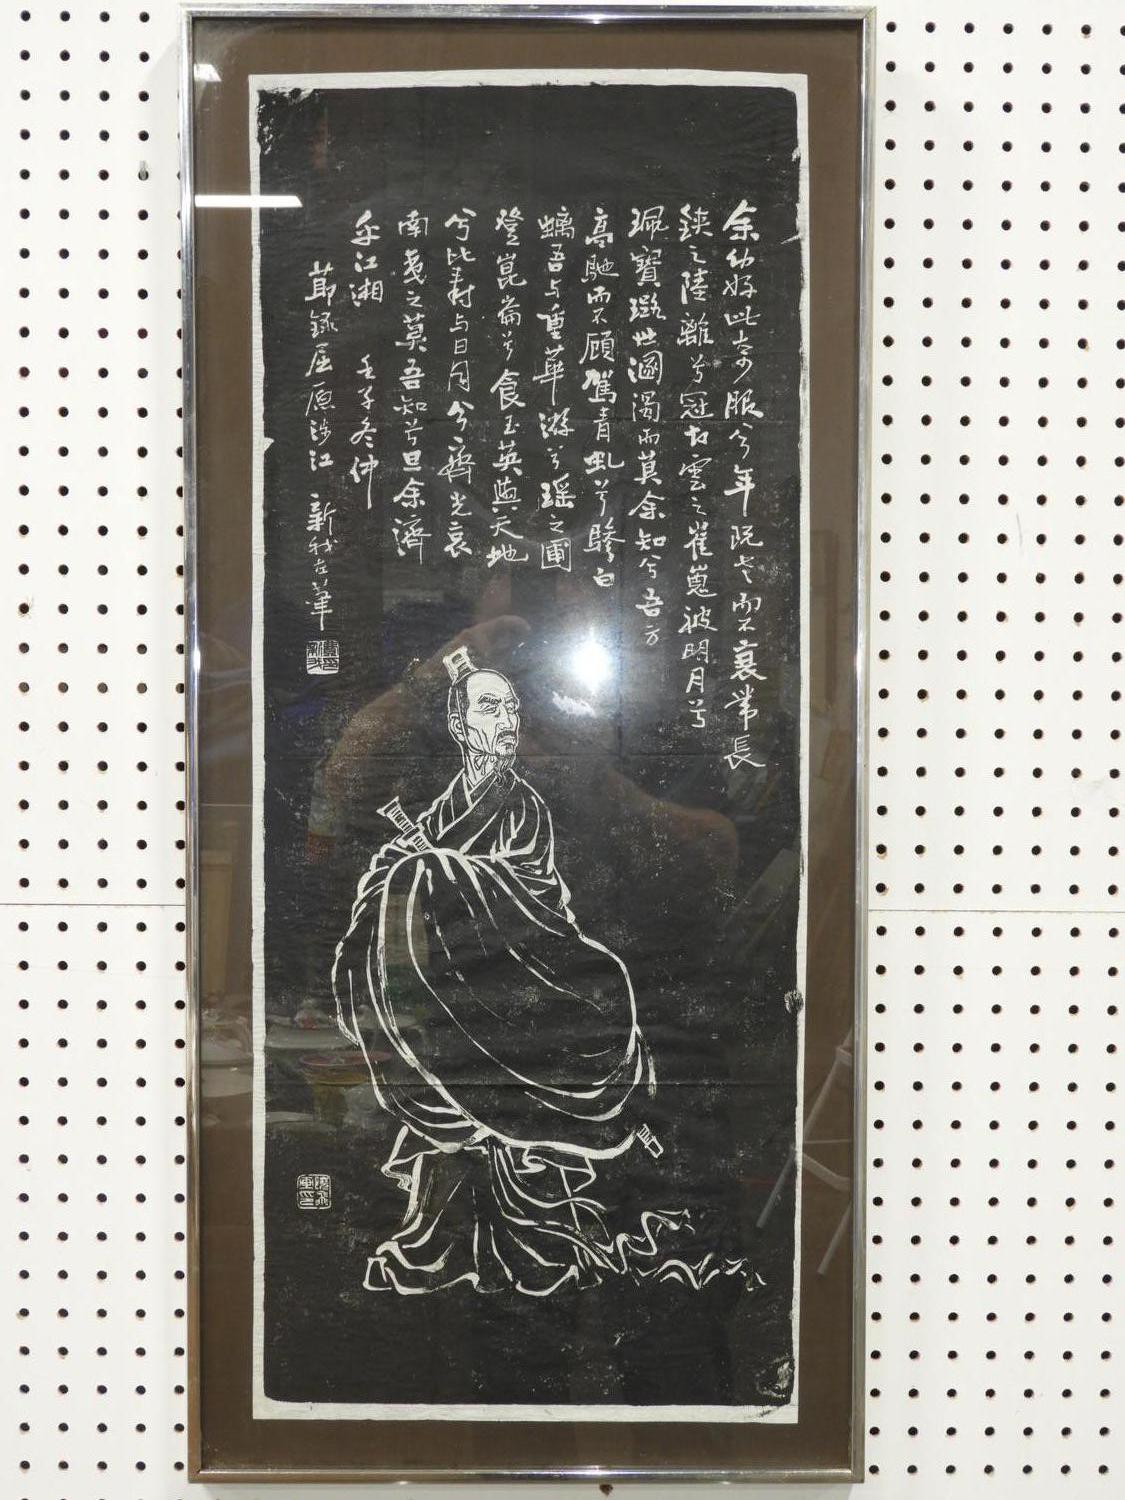 余幼好此奇服兮年既老而不衰帶長
鋏之陸離兮冠切雲之崔嵬被明月兮
珮寶璐世溷濁而莫余知兮吾方
高馳而不顧駕青虬兮驂白
螭吾与重華游兮瑶之圃
登崑崙兮食玉英與天地
兮比壽与日月兮齊光哀
南夷之莫吾知兮旦余濟
乎江湘 壬子冬仲
節録屈原涉江 新我左筆